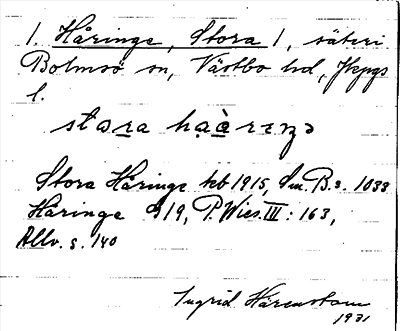 1. Håringe, Stora 1, säteri
Bolmsö sn, Västbo hd, Jkpgs
l.
stora haàrɪŋə
Stora Håringe kb 1915, Sm. B. s. 1033
Håringe 1919, P. Wies. III : 163,
Allv. s. 140
Ingrid Härenstam
1931